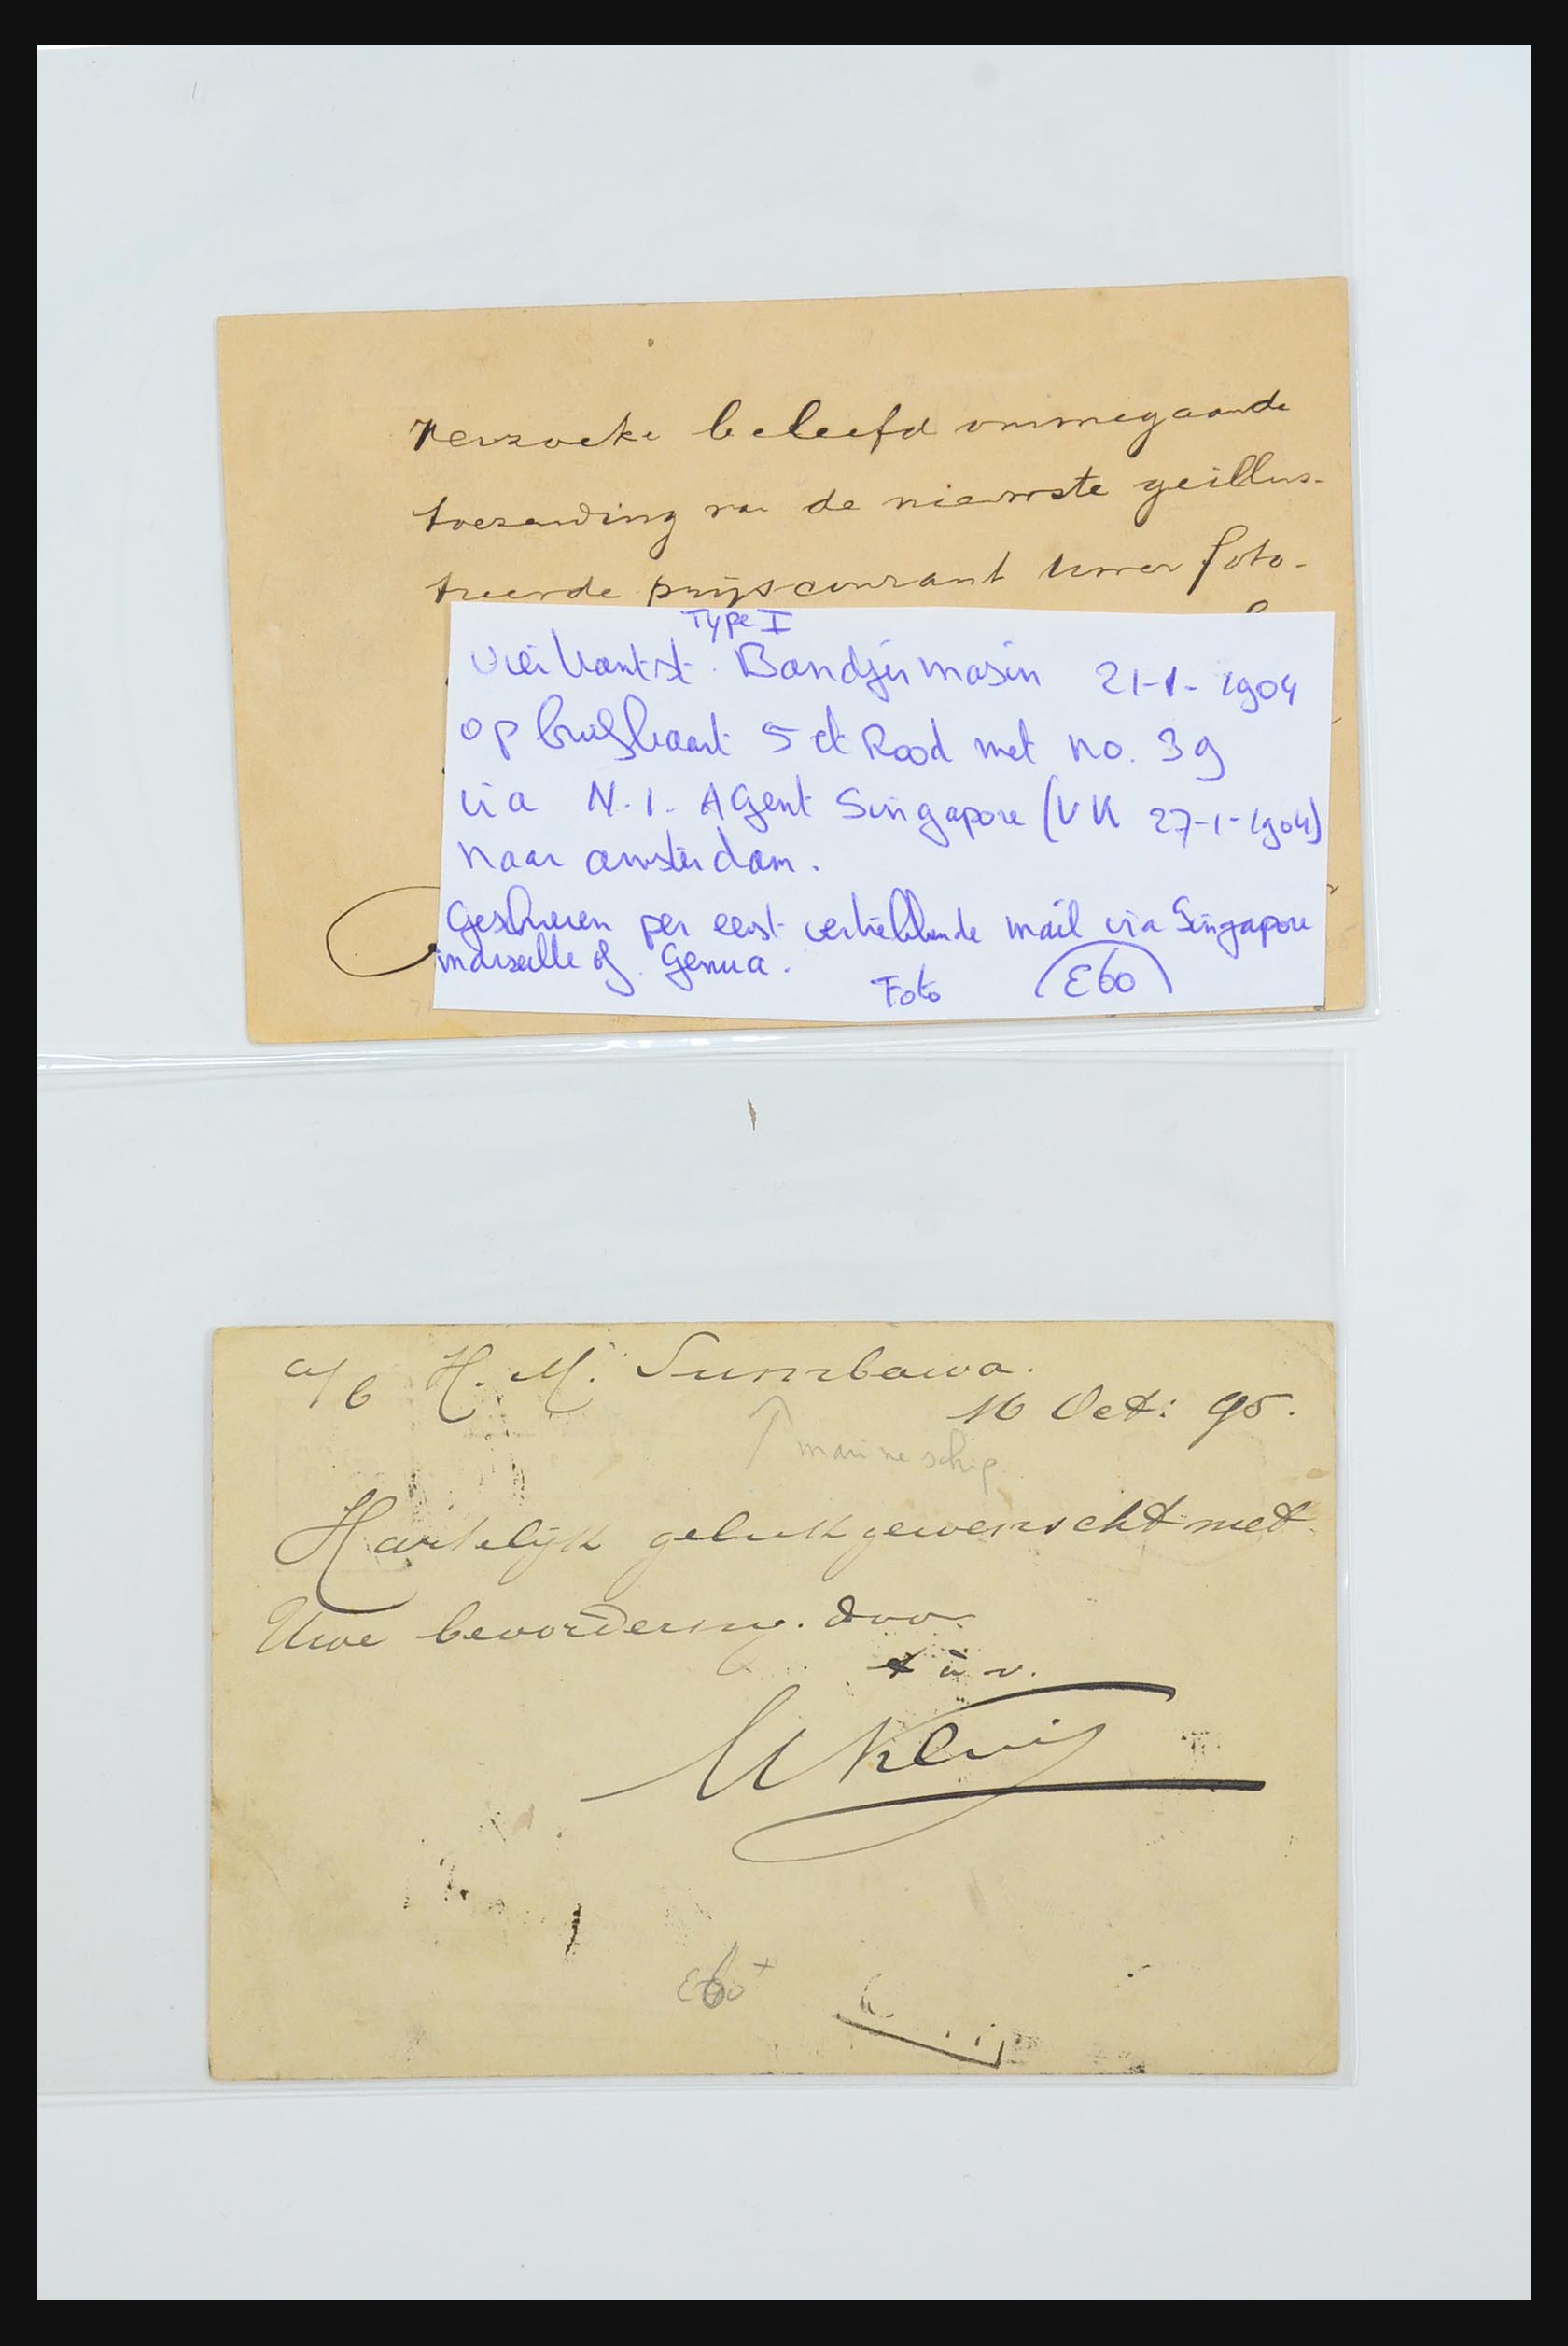 Verzoeke beleefd ommegaande
toezending van de nieuwste geillus-
treerde prijscourant Uwer foto-
Type I
vierkantst. Bandjermasin 21-1-1904
op briefkaart 5 ct Rood met no. 39
via N.I. Agent Singapore (VK 27-1-1904)
naar amsterdam.
Geschreven per eerst vertrekkende mail via Singapore
marseille of Genua.
Foto E60
a/b H. M. Sumbawa.
16 Oct: 95.
marine schip
Hartelijk gelukgewenscht met
Uwe bevordering. door
t à v.
E60+